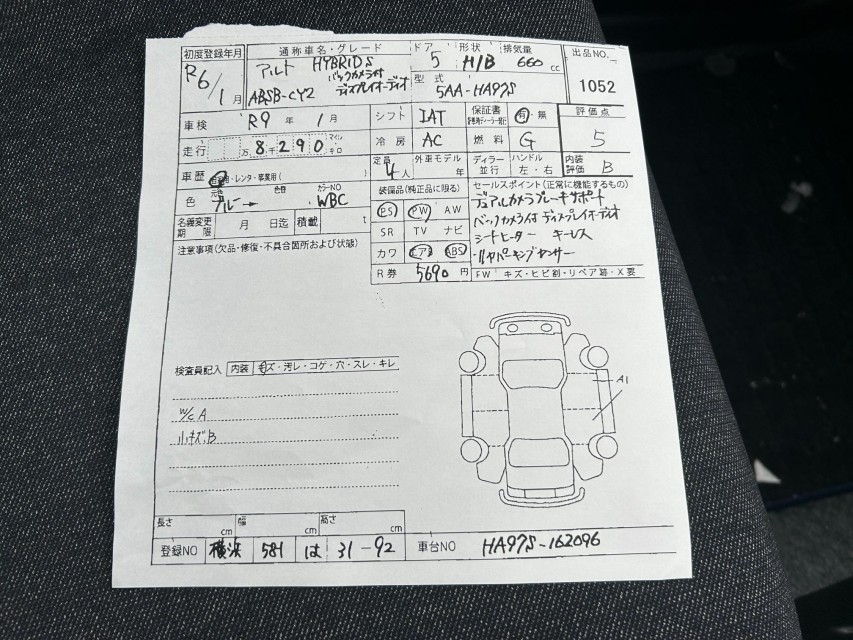 初度登録年月 通称車名・グレード ドア 形状 排気量 出品NO.
R6/1月 アルト HYBRID S バックカメラ付 ディスプレイオーディオ 5 H/B 660cc 1052
ABSB-CY2 型式 5AA-HA97S
車検 R9年1月 シフト IAT 保証書 有・無 評価点
走行 万8千290 マイル キロ 冷房 AC 燃料 G 5
車歴 自家用・レンタ・事業用( ) 定員 4人 外車モデル 年 ディラー 並行 ハンドル 左・右 内装評価 B
色 元色 ブルー→ 色替 カラーNO WBC 装備品(純正品に限る) セールスポイント(正常に機能するもの)
名義変更期限 月 日迄 積載 PS PW AW デュアルカメラブレーキサポート
注意事項(欠品・修復・不具合箇所および状態) SR TV ナビ バックカメラ付ディスプレイオーディオ
カワ エアB ABS シートヒーター キーレス
リヤパーキングセンサー
R券 5690円 FW キズ・ヒビ割・リペア跡・X要
検査員記入 内装 キズ・汚レ・コゲ・穴・スレ・キレ
A1
W/C A
小キズB
長さ cm 幅 cm 高さ cm
登録NO 横浜 581 は 31-92 車台NO HA97S-162096